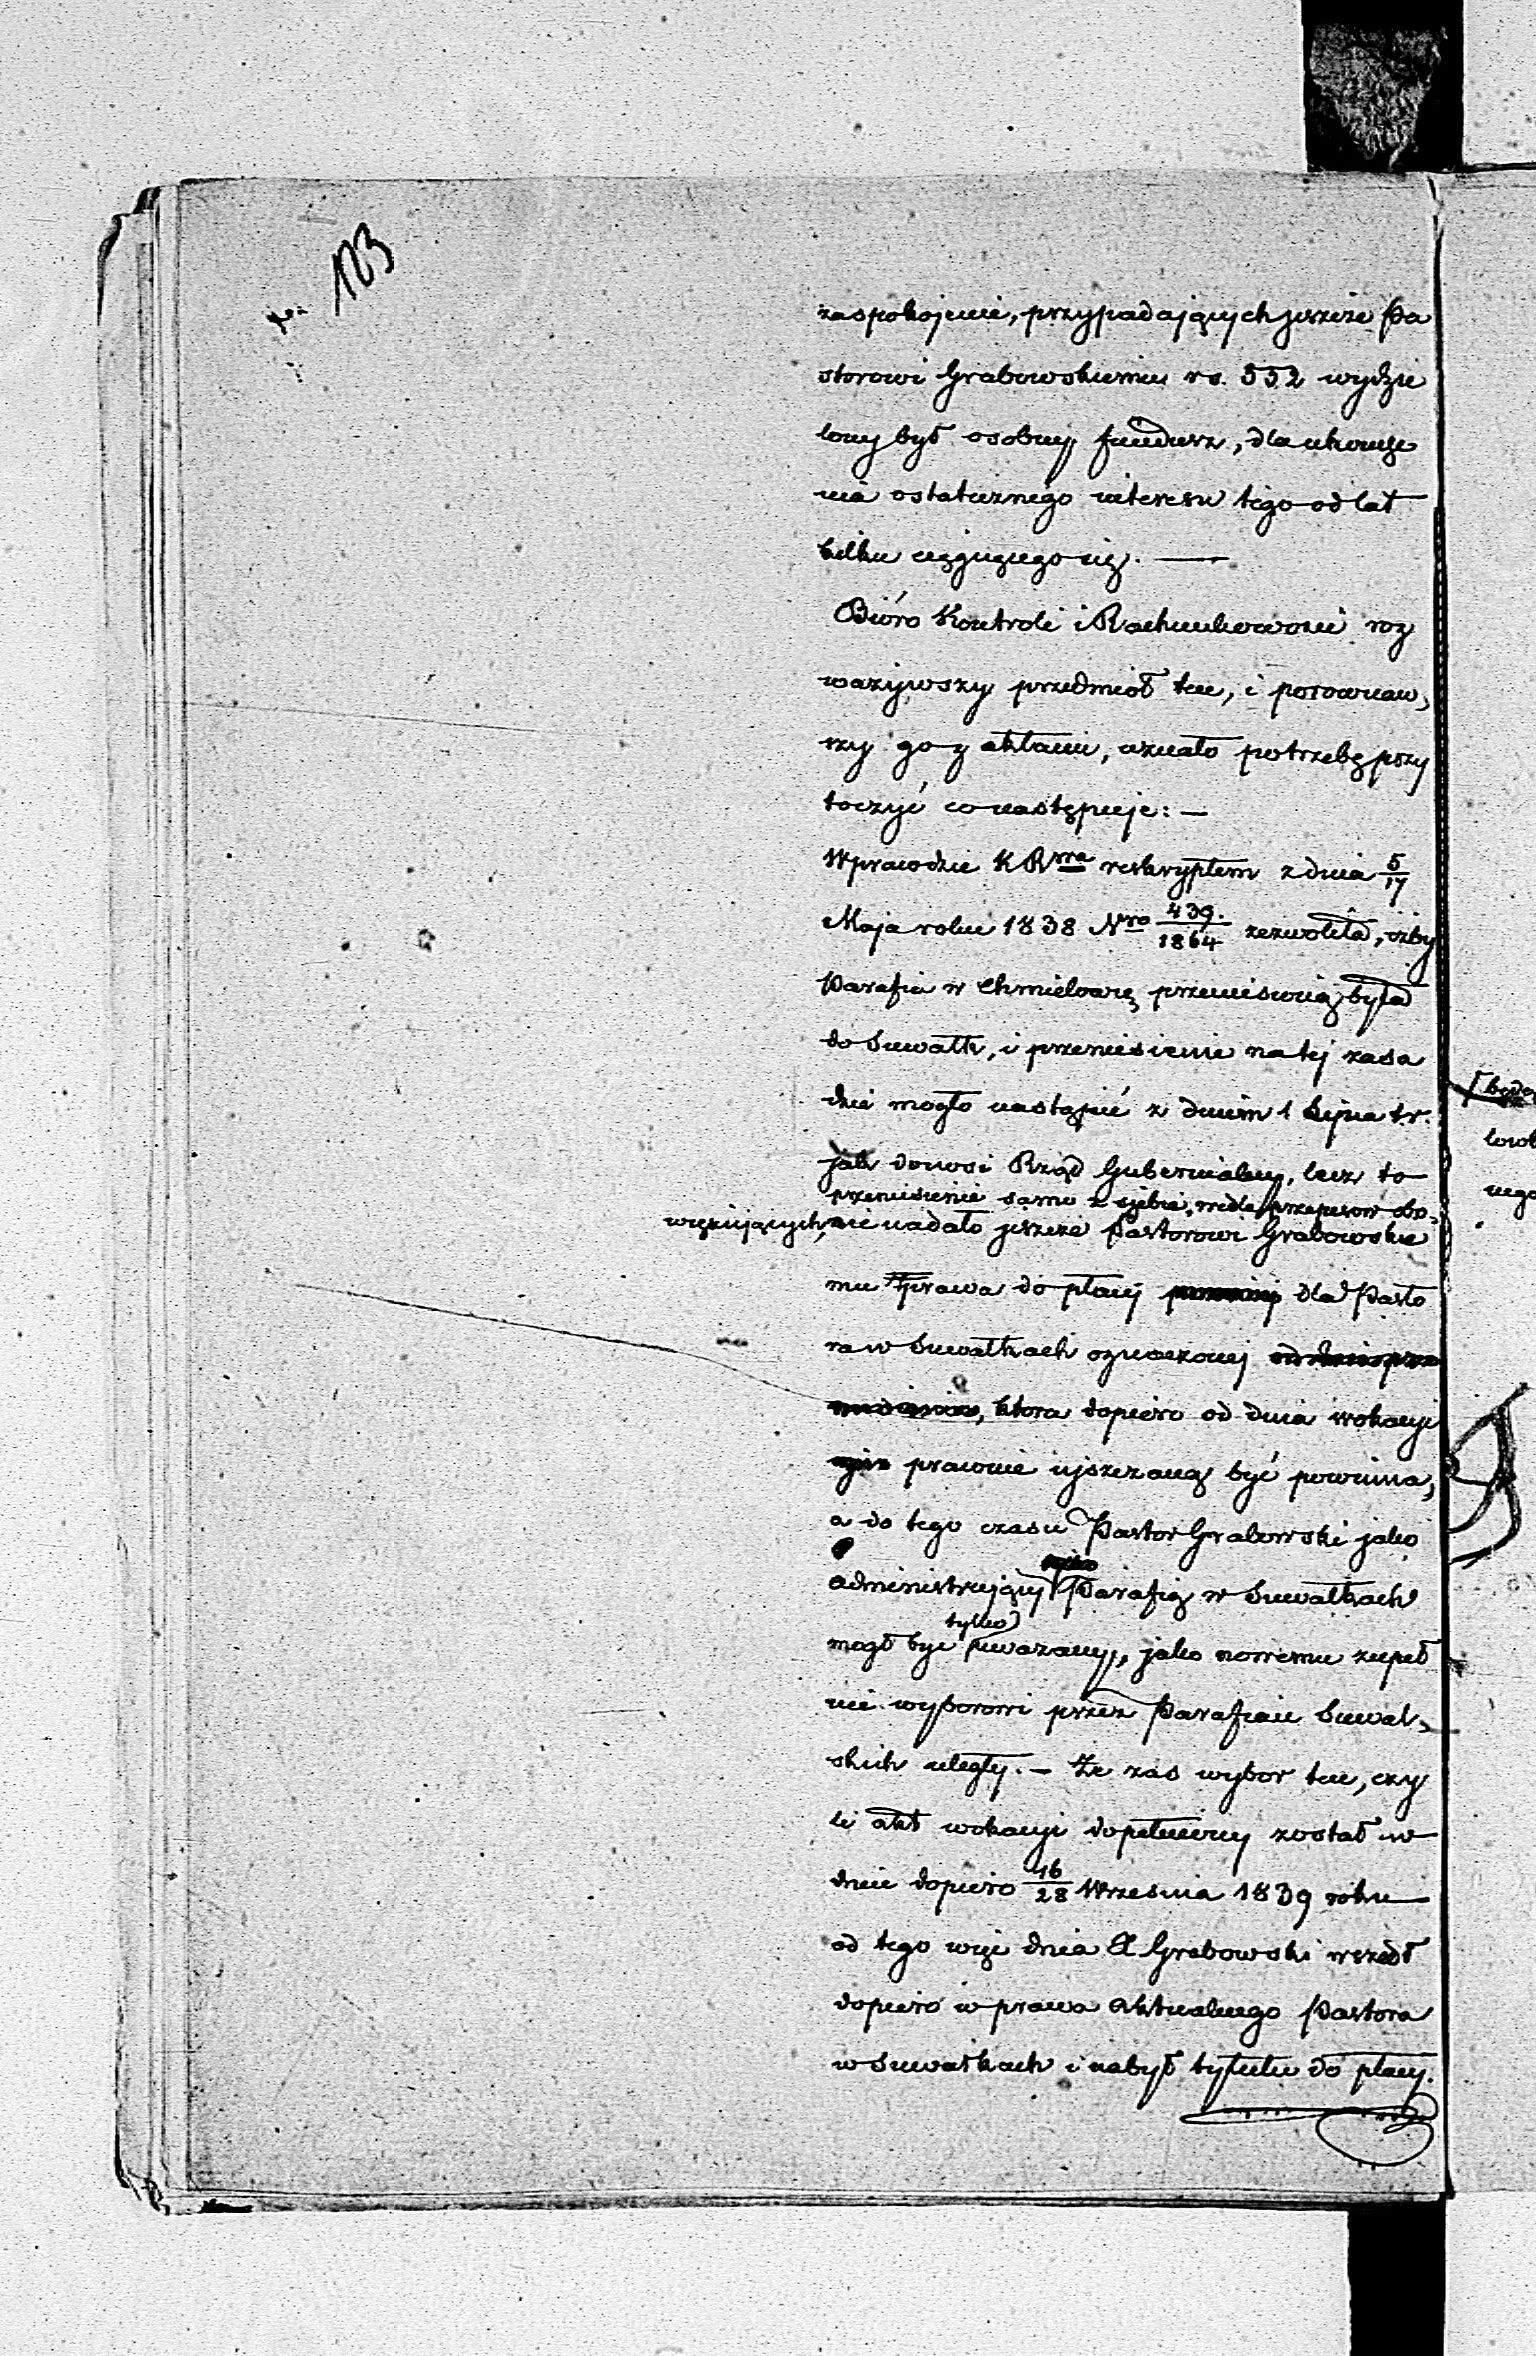 123
zaspokojenie, przypadających jeszcze Pa
storowi Grabowskiemu rs. 552 wydzie
lony był osobny fundusz, dla ukończe
nia ostatecznego interesu tego od lat
kilku ciągnącego się. —
Bióro Kontroli i Rachunkowości roz
ważywszy przedmiot ten, i porownaw,
szy go z aktami, uznało potrzebę przy
toczyć co następuje: —
Wprawdzie K R reskryptem z dnia 5/17
Maja roku 1838 Nro 439./1864 zezwoliła, iżby
Parafia w Chmielowie przeniesioną była
do Suwałk, i przeniesienie na tej zasa
dzie mogło nastąpić z dniem 1 Lipca t.r.
jak donosi Rząd Gubernialny, lecz to
przeniesienie samo z siebie, wedle przepisow obo,
wiązujących, nie nadało jeszcze Pastorowi Grabowskie
mu prawa do płacy dla Pasto
ra w Suwałkach oznaczonej
, ktora dopiero od dnia wokacyi
prawnie uiszczaną być powinna,
a do tego czasu Pastor Grabowski jako
administrujący Parafią w Suwałkach
tylko
mogł być uważany, jako nowemu zupeł
nie wyborowi przez Parafian Suwal,
skich uległy. — Że zas wybor ten, czy
li akt wokacyi dopełniony został w
dniu dopiero 16/28 Września 1839 roku
od tego więc dnia X Grabowski wszedł
dopiero w prawa aktualnego Pastora
w Suwałkach i nabył tytułu do płacy.